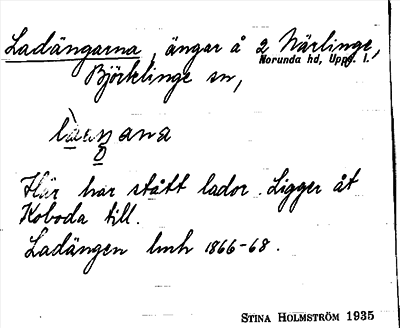 Ladängarna, ängar å 2 Närlinge,
Norunda hd, Upps. l.
Björklinge sn,
Här har stått lador. Ligger åt
Koboda till.
Ladängen lmh 1866-68.
STINA HOLMSTRÖM 1935